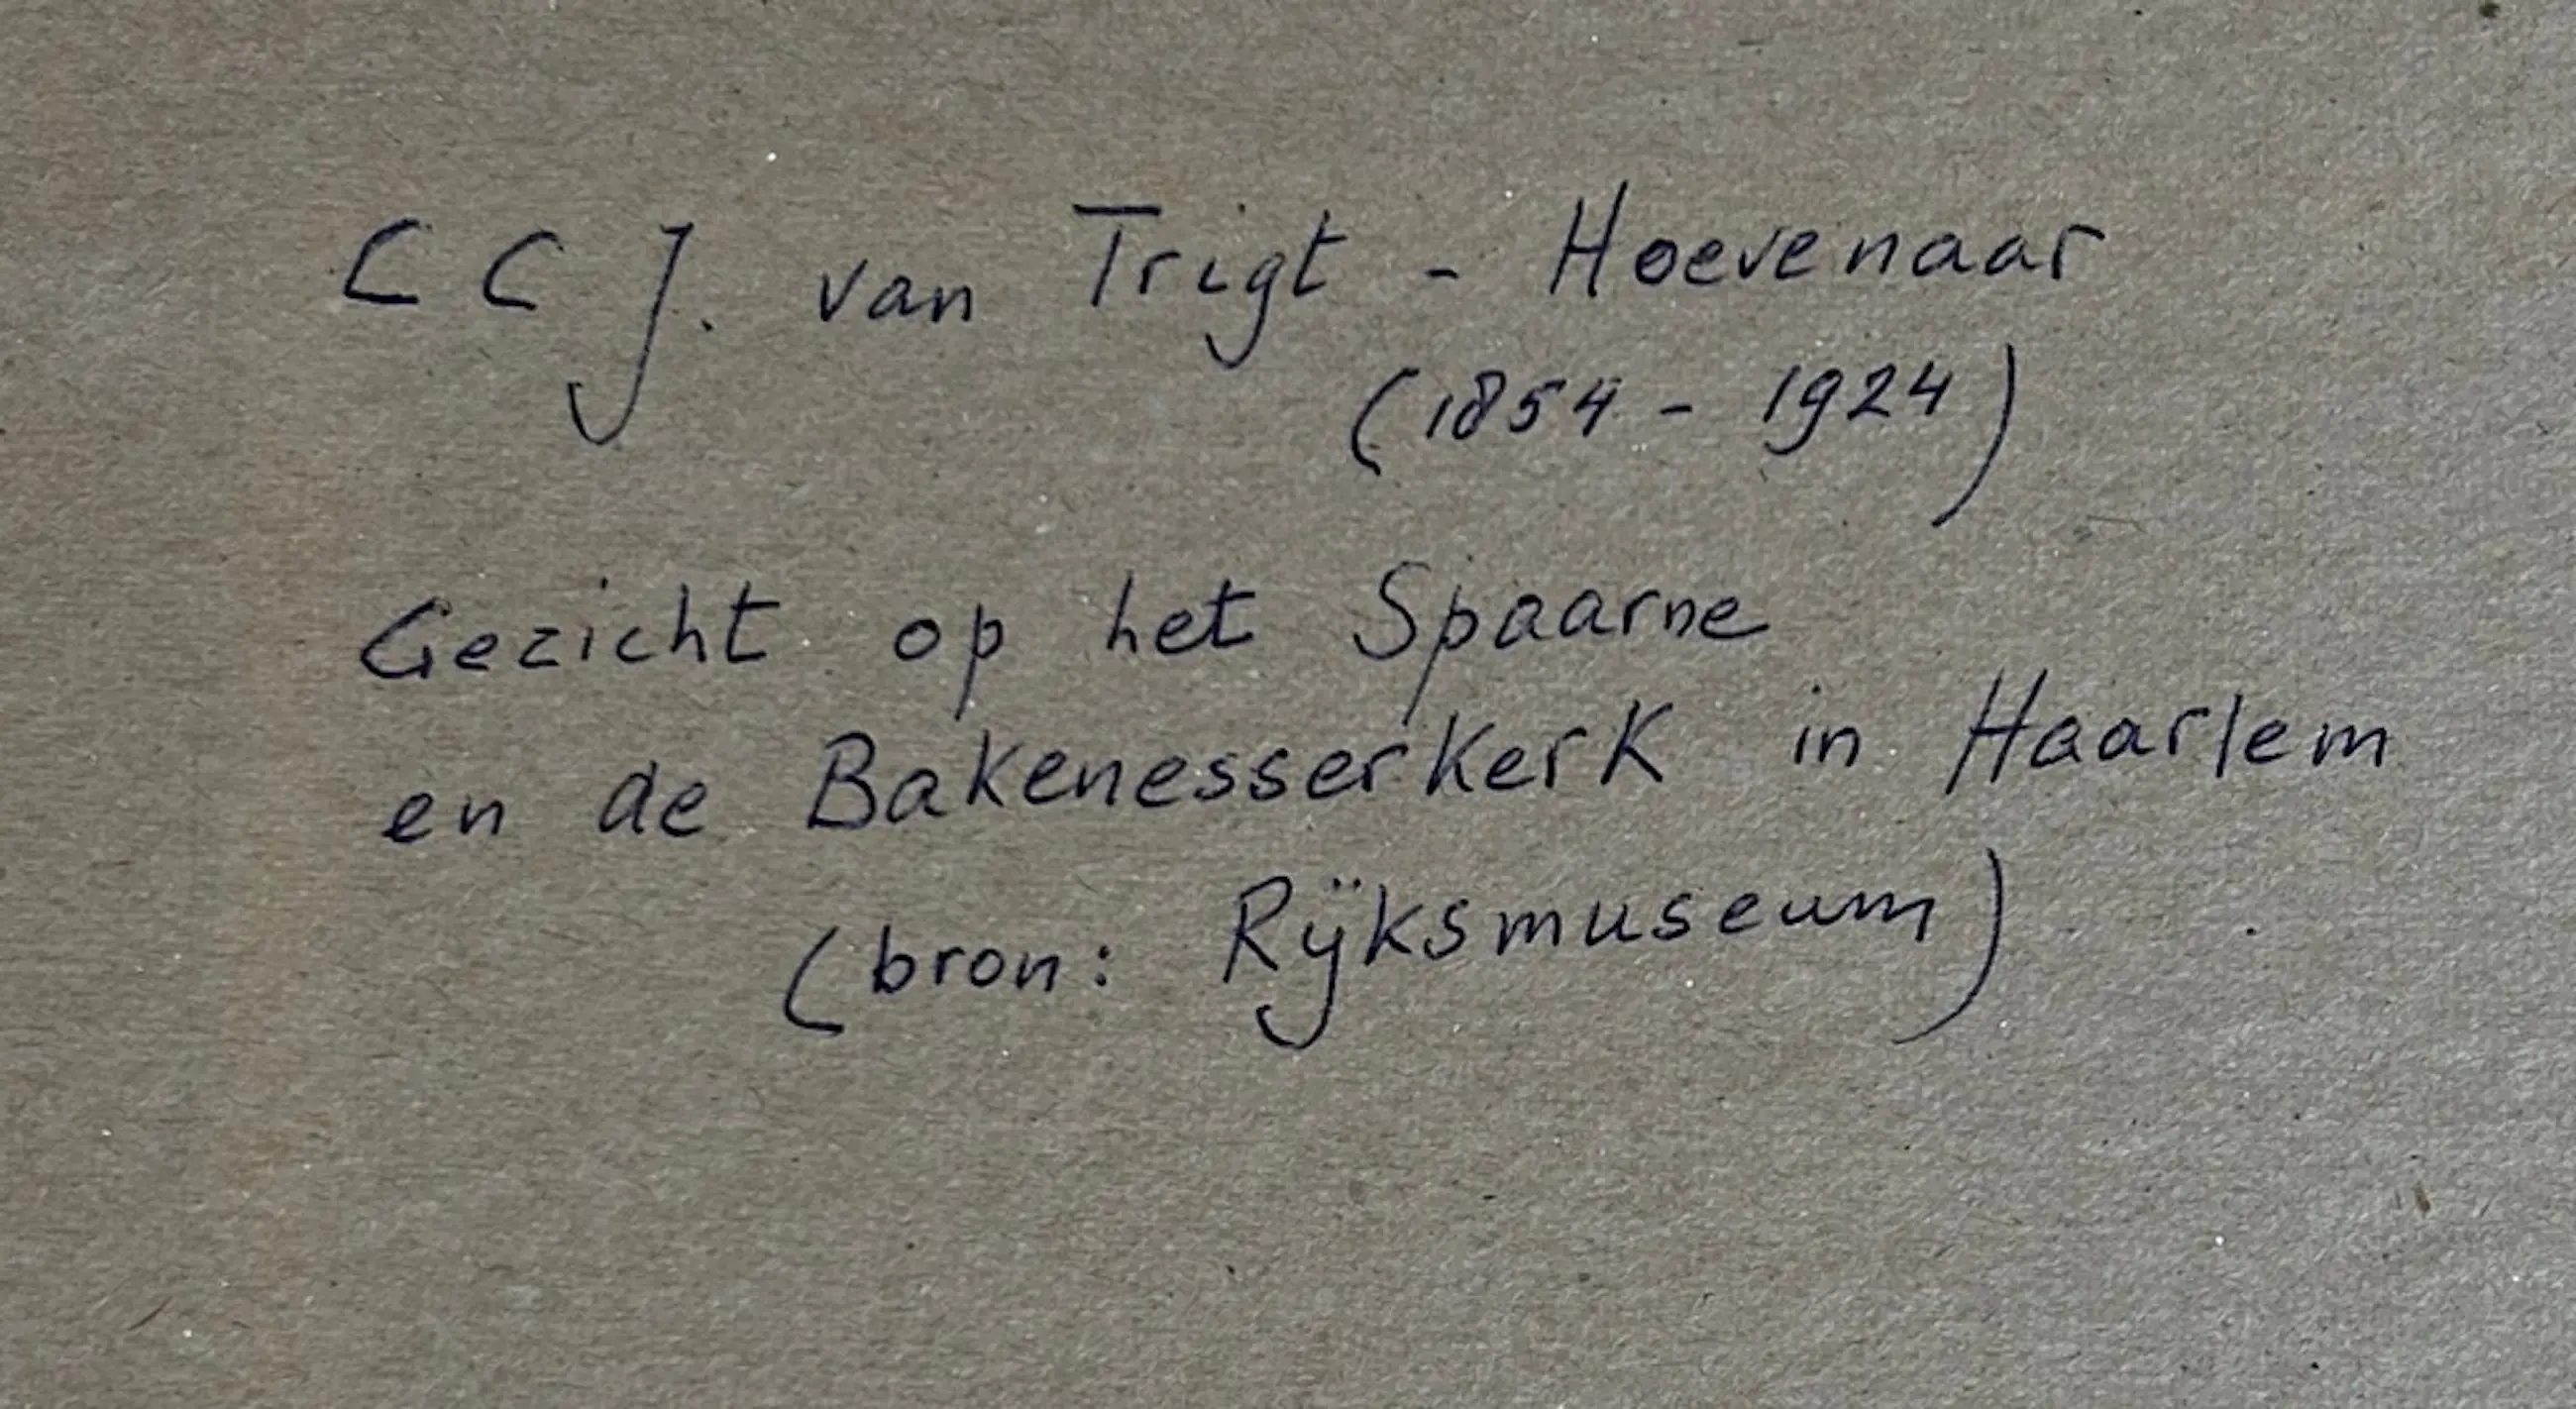 C C J. van Trigt - Hoevenaar
(1854 - 1924)
Gezicht op het Spaarne
en de Bakenesserkerk in Haarlem
(bron: Rijksmuseum)